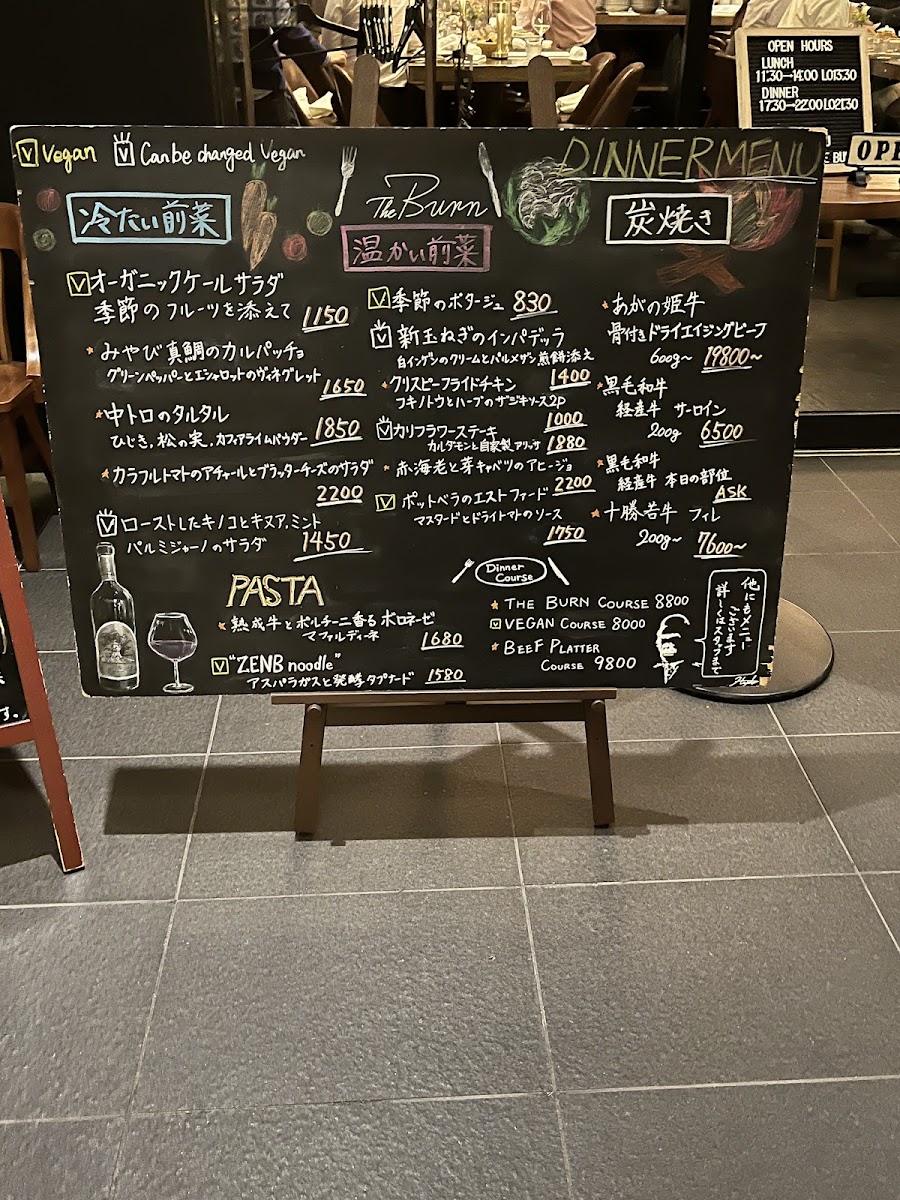 OPEN HOURS
LUNCH
11:30–14:00 LO13:30
DINNER
17:30–22:00 LO21:30
OPE
V Vegan V Can be changed Vegan
DINNER MENU
The Burn
冷たい前菜
V オーガニックケールサラダ
季節のフルーツを添えて 1150
みやび真鯛のカルパッチョ
グリーンペッパーとエシャロットのヴィネグレット
1650
中トロのタルタル
ひじき,松の実,カフィアライムパウダー 1850
カラフルトマトのアチャールとブラッターチーズのサラダ
2200
V ローストしたキノコとキヌア,ミント
パルミジャーノのサラダ 1450
温かい前菜
V 季節のポタージュ 830
V 新玉ねぎのインパデッラ
白インゲンのクリームとパルメザン煎餅添え
1400
クリスピーフライドチキン
フキノトウとハーブのザジキソース2P
1000
V カリフラワーステーキ
カルダモンと自家製アリッサ 1880
赤海老と芽キャベツのアヒージョ
2200
V ポットベラのエストファード
マスタードとドライトマトのソース
1750
炭焼き
あがの姫牛
骨付きドライエイジングビーフ
600g~ 19800~
黒毛和牛
経産牛 サーロイン
200g 6500
黒毛和牛
経産牛 本日の部位
ASK
十勝若牛 フィレ
200g~ 7600~
PASTA
熟成牛とポルチーニ香るボロネーゼ
マファルディーネ 1680
V "ZENB noodle"
アスパラガスと発酵タプナード 1580
Dinner
Course
THE BURN COURSE 8800
V VEGAN COURSE 8000
BEEF PLATTER
COURSE 9800
他にもメニュー
ございます
詳しくはスタッフまで
す.